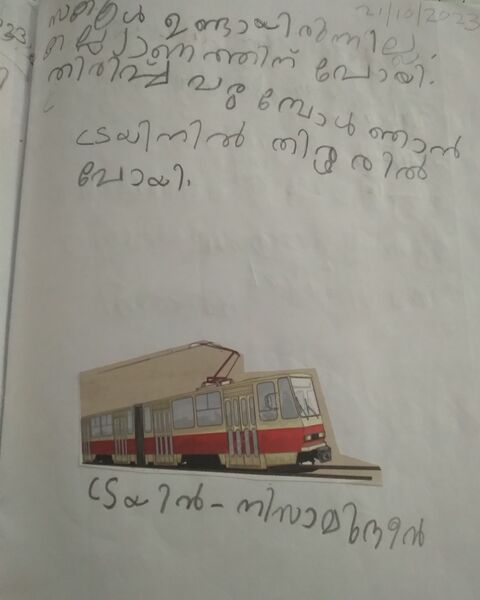 21/10/2023
സ്കൂൾ ഉണ്ടായിരുന്നില്ല.
കല്ല്യാണത്തിന് പോയി.
തിരിച്ച് വരുമ്പോൾ ഞാൻ
ട്രയിനിൽ തിരൂരിൽ
പോയി.
ട്രയിൻ - നിസാമുദ്ദീൻ